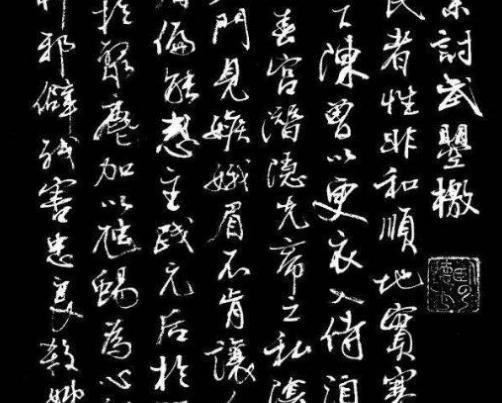 討武曌檄
氏者性非和順地實寒
下陳曾以更衣入侍洎
春宮潛隱先帝之私陰
門見嫉娥眉不肯讓
偏能惑主踐元后於
於聚麀加以虺蜴為心
邪僻殘害忠良殺姊